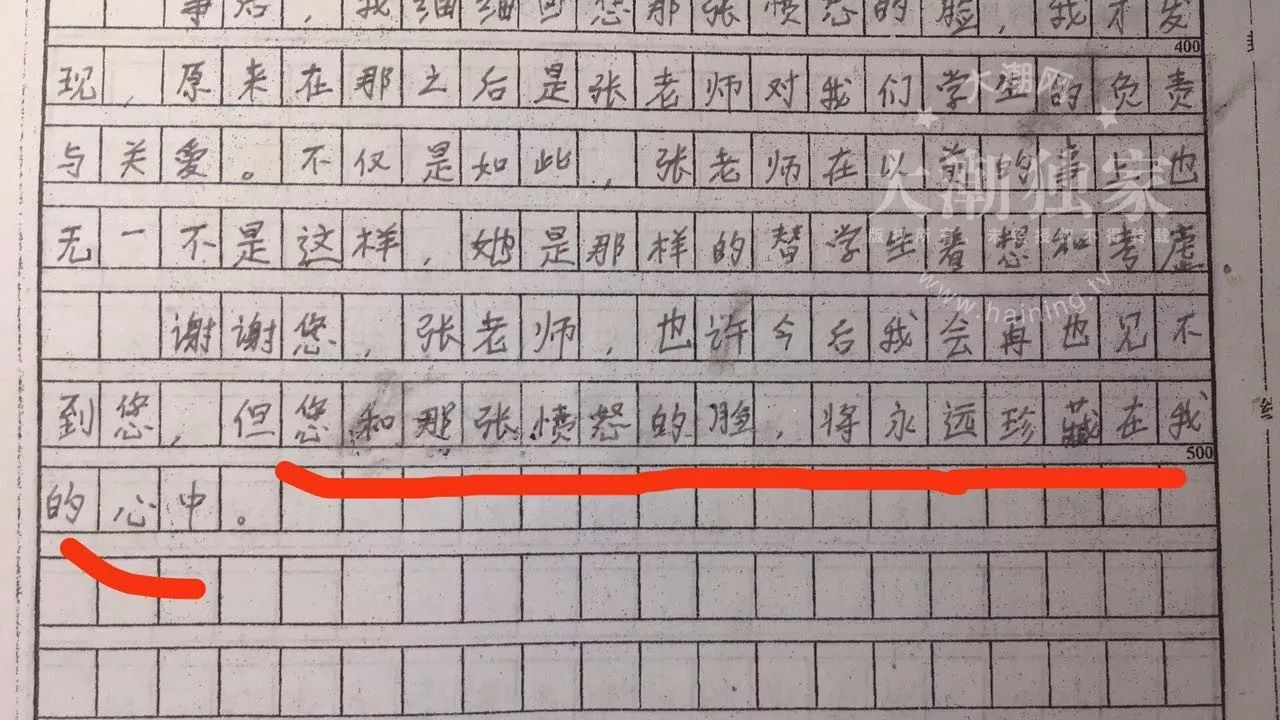 事后，我细细回想那张愤怒的脸，我才发
400
现，原来在那之后是张老师对我们学生的负责
与关爱。不仅是如此，张老师在以前的事上也
无一不是这样，她是那样的替学生着想和考虑
谢谢您，张老师，也许今后我会再也见不
到您，但您和那张愤怒的脸，将永远珍藏在我
500
的心中。
大潮网
大潮独家
版权所有，未经授权不得转载
www.haining.tv